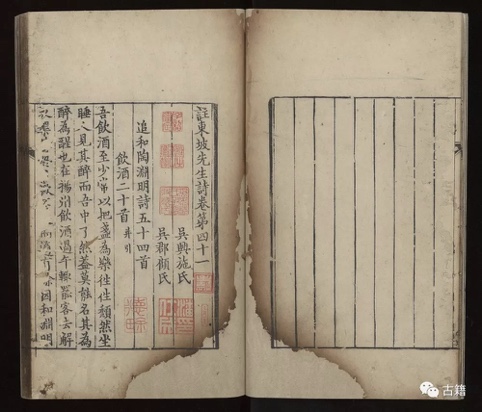 註東坡先生詩卷第四十一
吳興施氏
吳郡顧氏
追和陶淵明詩五十四首
飲酒二十首并引
吾飲酒至少常以把盞為樂往往頹然坐
睡人見其醉而吾中了然蓋莫能名其為
醉為醒也在揚州飲酒過午輒罷客去解
因和淵明
古籍